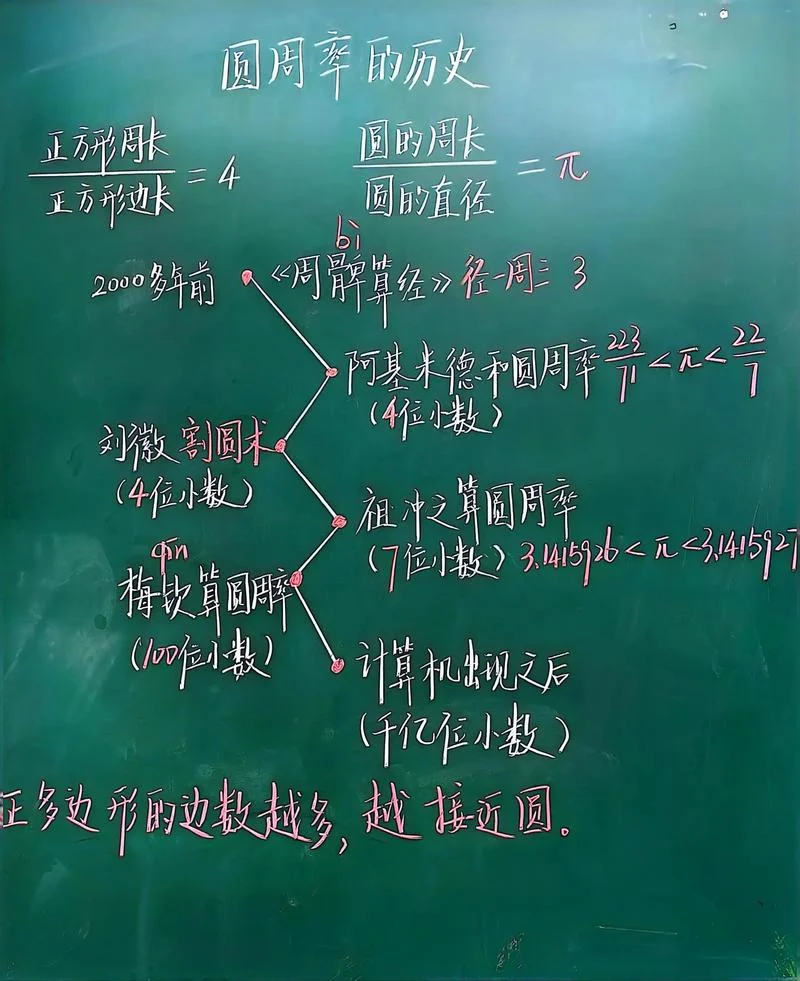 圆周率的历史
正方形周长/正方形边长=4
圆的周长/圆的直径=π
bi
2000多年前 《周髀算经》径一周三 3
阿基米德和圆周率 223/71<π<22/7
(4位小数)
刘徽 割圆术
(4位小数)
祖冲之算圆周率
(7位小数) 3.1415926<π<3.1415927
qīn
梅钦算圆周率
(100位小数)
计算机出现之后
(千亿位小数)
正多边形的边数越多,越接近圆。